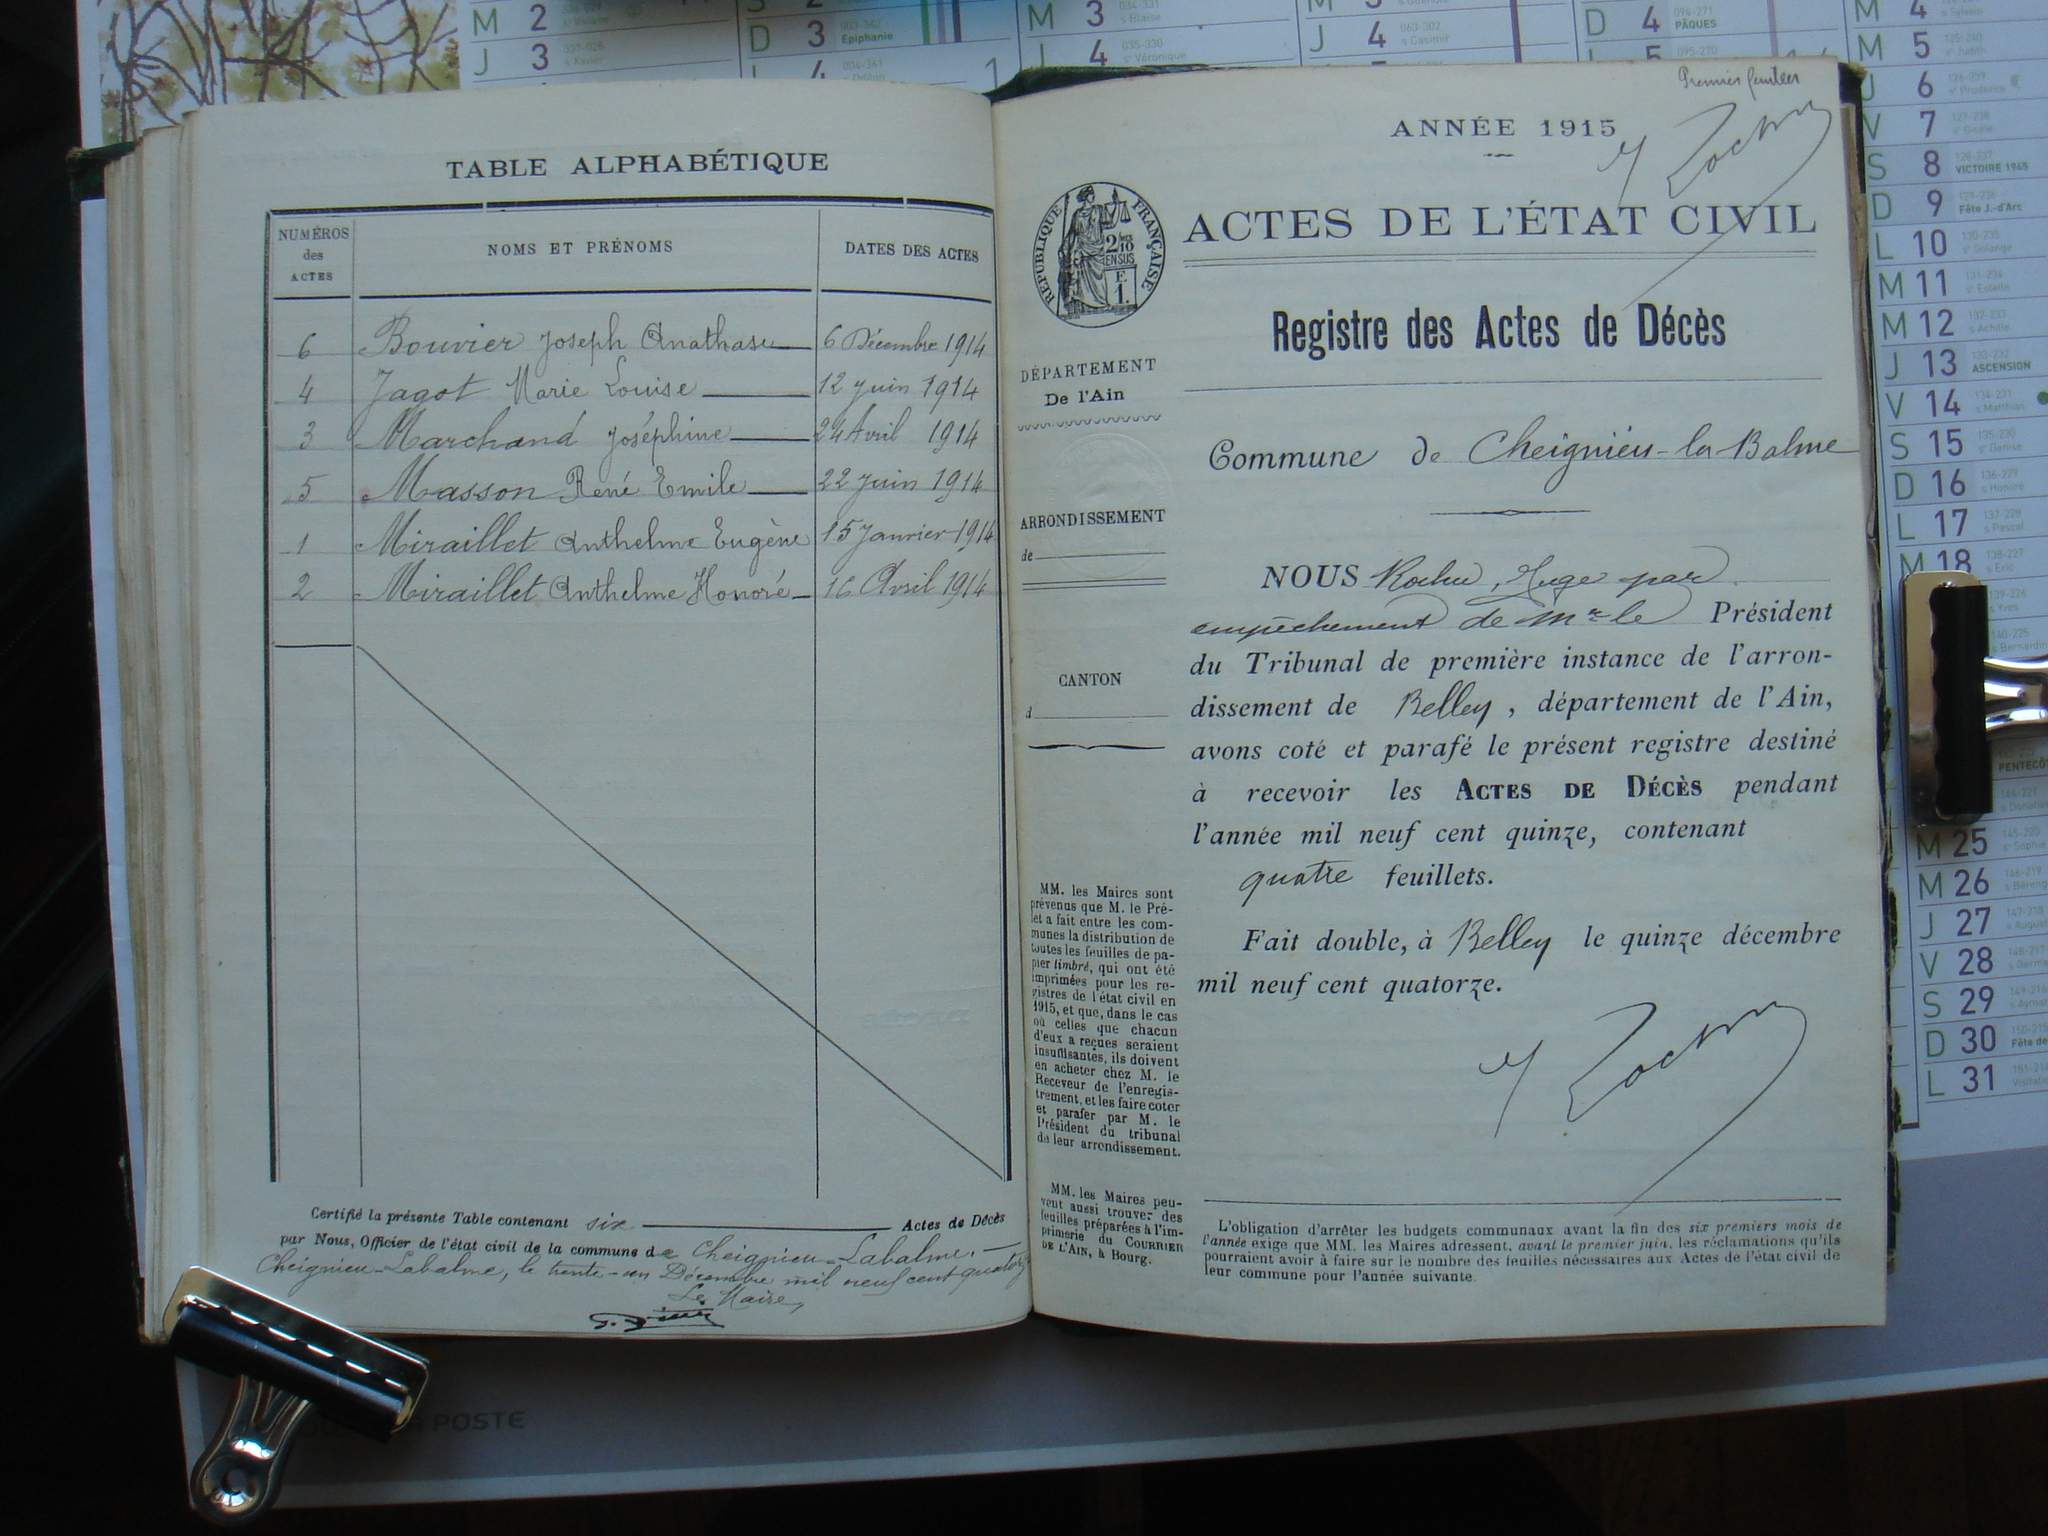 TABLE ALPHABÉTIQUE
NUMÉROS des ACTES
NOMS ET PRÉNOMS
DATES DES ACTES
6 Bouvier Joseph Anathase 6 Décembre 1914
4 Jagot Marie Louise 12 juin 1914
3 Marchand Joséphine 24 Avril 1914
5 Masson René Emile 22 juin 1914
1 Miraillet Anthelme Eugène 15 Janvier 1914
2 Miraillet Anthelme Honoré 16 Avril 1914
Certifié la présente Table contenant six Actes de Décès
par Nous, Officier de l'état civil de la commune de Cheignieu-Labalme.
Cheignieu-Labalme, le trente-un Décembre mil neuf cent quatorze
Le Maire,
Premier feuillet
ANNÉE 1915
RÉPUBLIQUE FRANÇAISE
ACTES DE L'ÉTAT CIVIL
Registre des Actes de Décès
DÉPARTEMENT
De l'Ain
Commune de Cheignieu-la-Balme
ARRONDISSEMENT
de
CANTON
d
NOUS Rochu, Juge par
empêchement de Mr le Président
du Tribunal de première instance de l'arron-
dissement de Belley, département de l'Ain,
avons coté et parafé le présent registre destiné
à recevoir les ACTES DE DÉCÈS pendant
l'année mil neuf cent quinze, contenant
quatre feuillets.
Fait double, à Belley le quinze décembre
mil neuf cent quatorze.
MM. les Maires sont
prévenus que M. le Pré-
fet a fait entre les com-
munes la distribution de
toutes les feuilles de pa-
pier timbré, qui ont été
imprimées pour les re-
gistres de l'état civil en
1915, et que, dans le cas
où celles que chacun
d'eux a reçues seraient
insuffisantes, ils doivent
en acheter chez M. le
Receveur de l'enregis-
trement, et les faire coter
et parafer par M. le
Président du tribunal
de leur arrondissement.
MM. les Maires peu-
vent aussi trouver des
feuilles préparées à l'im-
primerie du COURRIER
DE L'AIN, à Bourg.
L'obligation d'arrêter les budgets communaux avant la fin des six premiers mois de
l'année exige que MM. les Maires adressent, avant le premier juin, les réclamations qu'ils
pourraient avoir à faire sur le nombre des feuilles nécessaires aux Actes de l'état civil de
leur commune pour l'année suivante.
M 2
J 3
D 3 Epiphanie
M 3
L 4
J 4
D 4 PÂQUES
M 4
M 5
J 6
V 7
S 8 VICTOIRE 1945
D 9 Fête J.-d'Arc
L 10
M 11
M 12
J 13 ASCENSION
V 14
S 15
D 16
L 17
M 18
M 25
M 26
J 27
V 28
S 29
D 30
L 31
POSTE